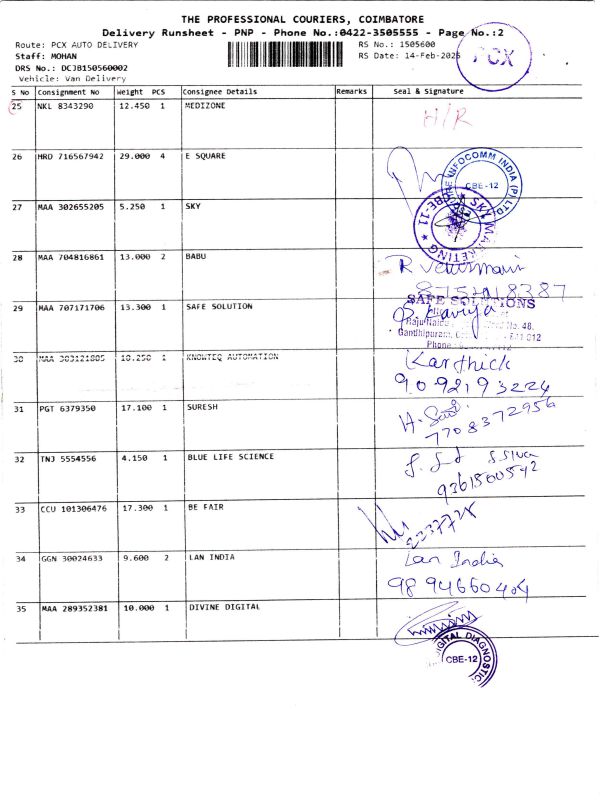 THE PROFESSIONAL COURIERS, COIMBATORE
Delivery Runsheet - PNP - Phone No.:0422-3505555 - Page No.:2
Route: PCX AUTO DELIVERY
RS No.: 1505600
Staff: MOHAN
RS Date: 14-Feb-2025
PCX
DRS No.: DCJB150560002
Vehicle: Van Delivery
S No Consignment No Weight PCS Consignee Details Remarks Seal & Signature
25 NKL 8343290 12.450 1 MEDIZONE H/R
26 HRD 716567942 29.000 4 E SQUARE
INFOCOMM INDIA (P) LTD CBE-12
27 MAA 302655205 5.250 1 SKY
SKY MARKETING CBE-11
28 MAA 704816861 13.000 2 BABU
29 MAA 707171706 13.300 1 SAFE SOLUTION
SAFE SOLUTIONS
Kaviya
No. 48,
Gandhipuram,
Phone
30 MAA 303121885 10.250 1 KNOWTEQ AUTOMATION
Karthick
9092193224
31 PGT 6379350 17.100 1 SURESH
7708372956
32 TNJ 5554556 4.150 1 BLUE LIFE SCIENCE
9361500542
33 CCU 101306476 17.300 1 BE FAIR
34 GGN 30024633 9.600 2 LAN INDIA
Lan India
9894660404
35 MAA 289352381 10.000 1 DIVINE DIGITAL
DIGITAL DIAGNOSTIC
CBE-12